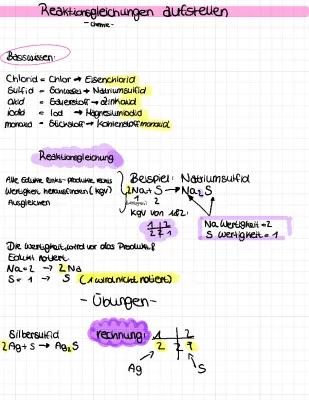 Reaktionsgleichungen aufstellen
- Chemie -
Basiswissen:
Chlorid = Chlor → Eisenchlorid
Sulfid = Schwefel → Natriumsulfid
oxid = Sauerstoff → zinkoxid
iodid = Iod → Magnesiumiodid
monoxid = Stickstoff → Kohlenstoffmonoxid
Reaktionsgleichung
Alle Edukte links - produkte rechts
Wertigkeit herausfinden (kgV)
Ausgleichen
Beispiel: Natriumsulfid
2Na + S → Na2S
1 2
kgV von 1&2:
1 2
2 2 1
Na Wertigkeit = 2
S Wertigkeit = 1
Die Wertigkeit wird vor das Produkt &
Edukt notiert
Na = 2 → 2Na
S = 1 → S (1 wird nicht notiert)
- Übungen -
Silbersulfid
2Ag + S → Ag2S
rechnung:
1 2
2 2 1
Ag S